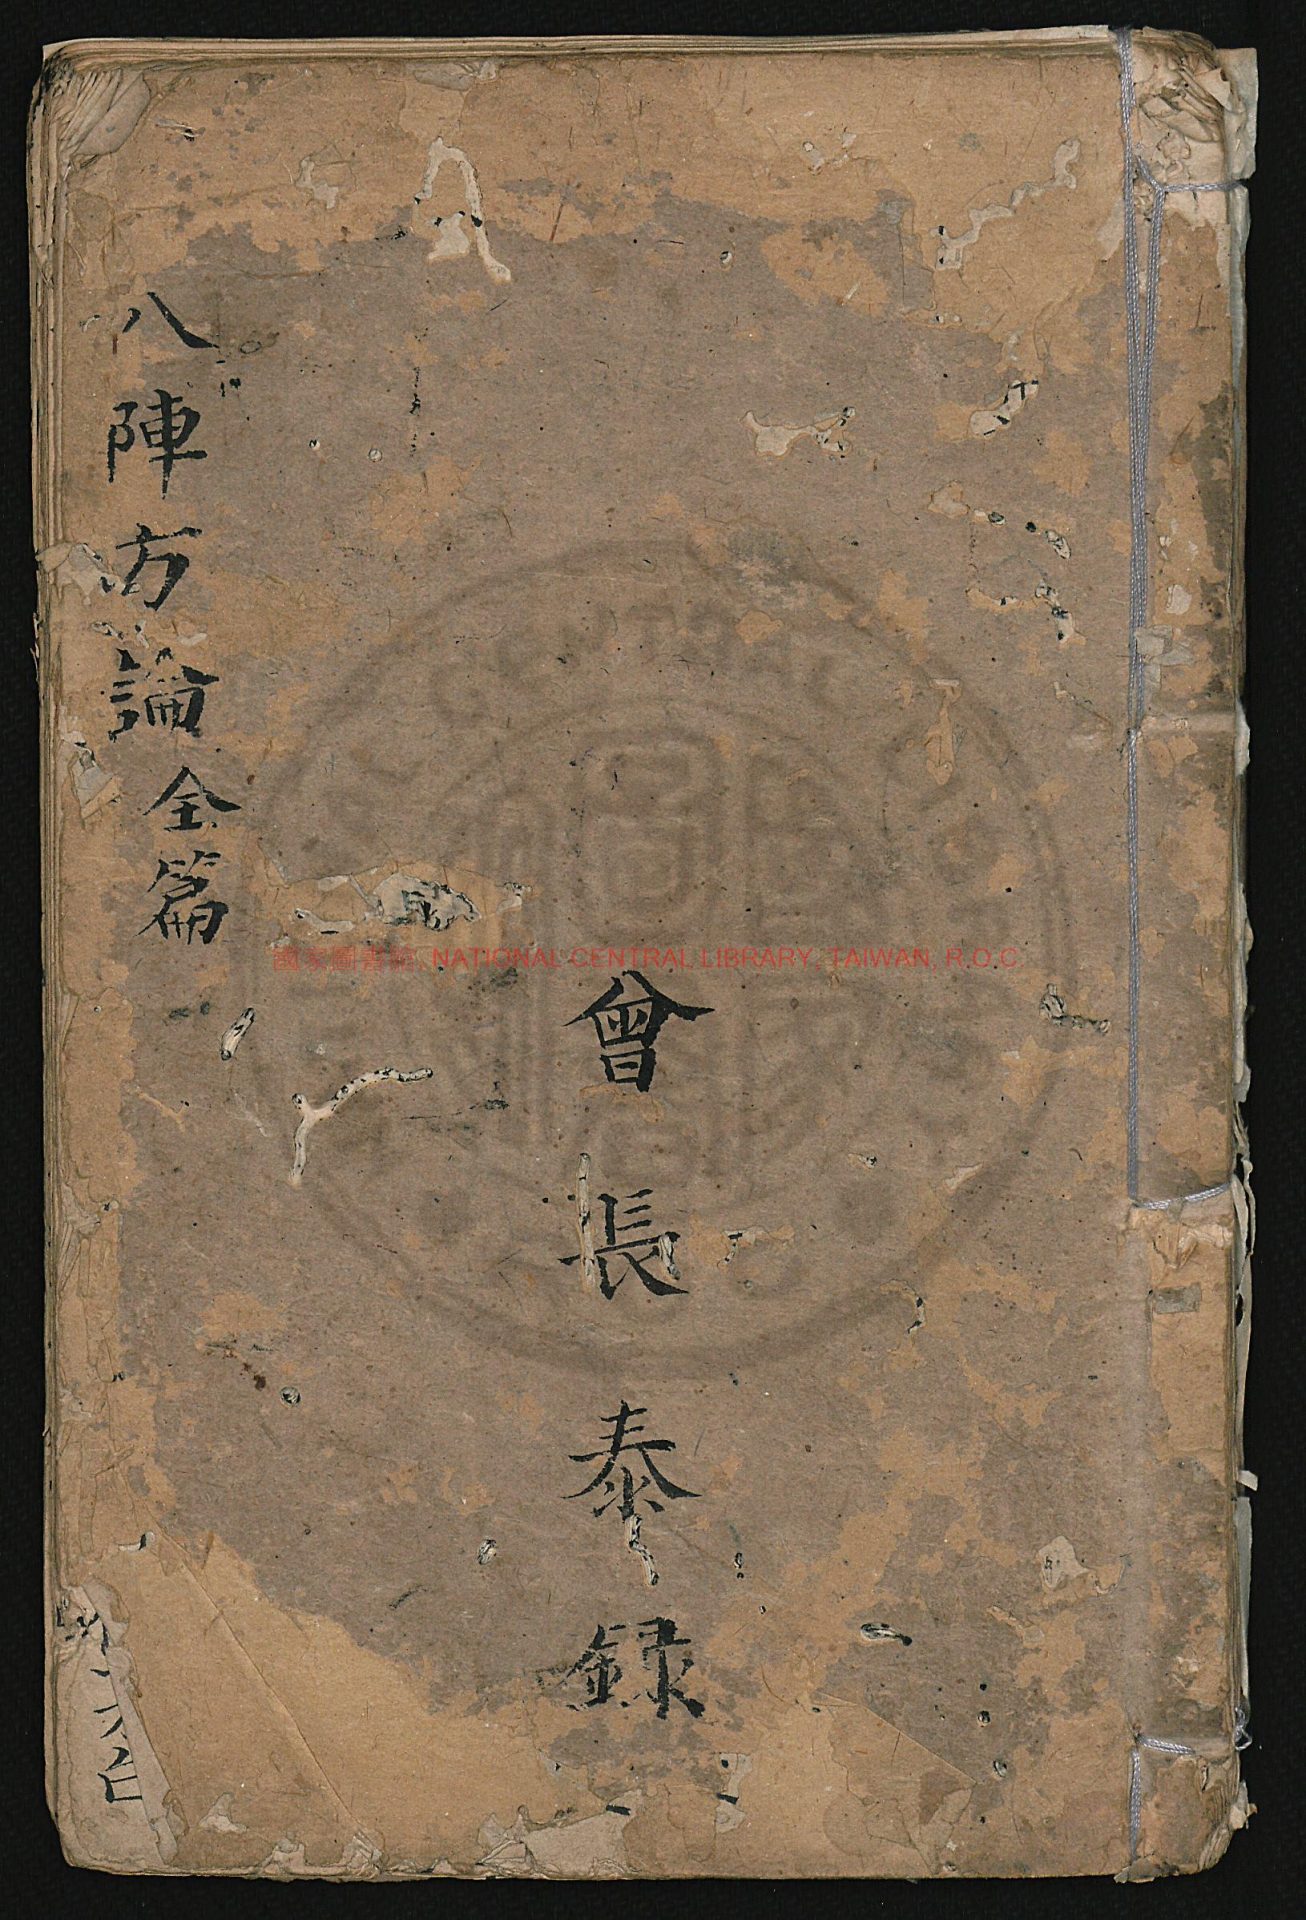 八陣方論全篇
曾長泰録
國家圖書館, NATIONAL CENTRAL LIBRARY, TAIWAN, R.O.C